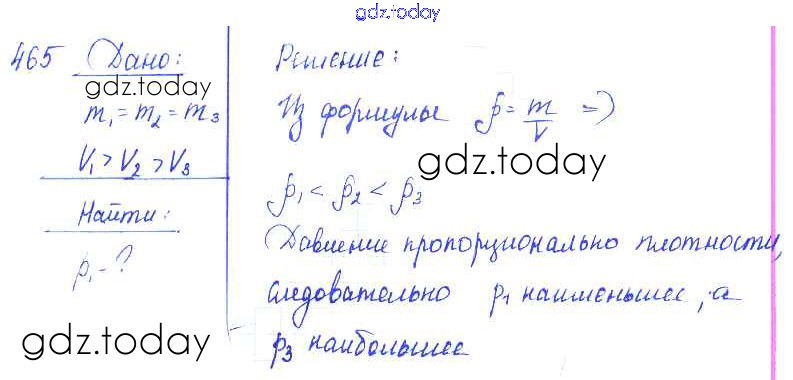 gdz.today
465 Дано:
gdz.today
m₁ = m₂ = m₃
V₁ > V₂ > V₃
Найти:
p₁ - ?
gdz.today
Решение:
Из формулы ρ = m/V =>
gdz.today
ρ₁ < ρ₂ < ρ₃
Давление пропорционально плотности,
следовательно p₁ наименьшее, а
p₃ наибольшее